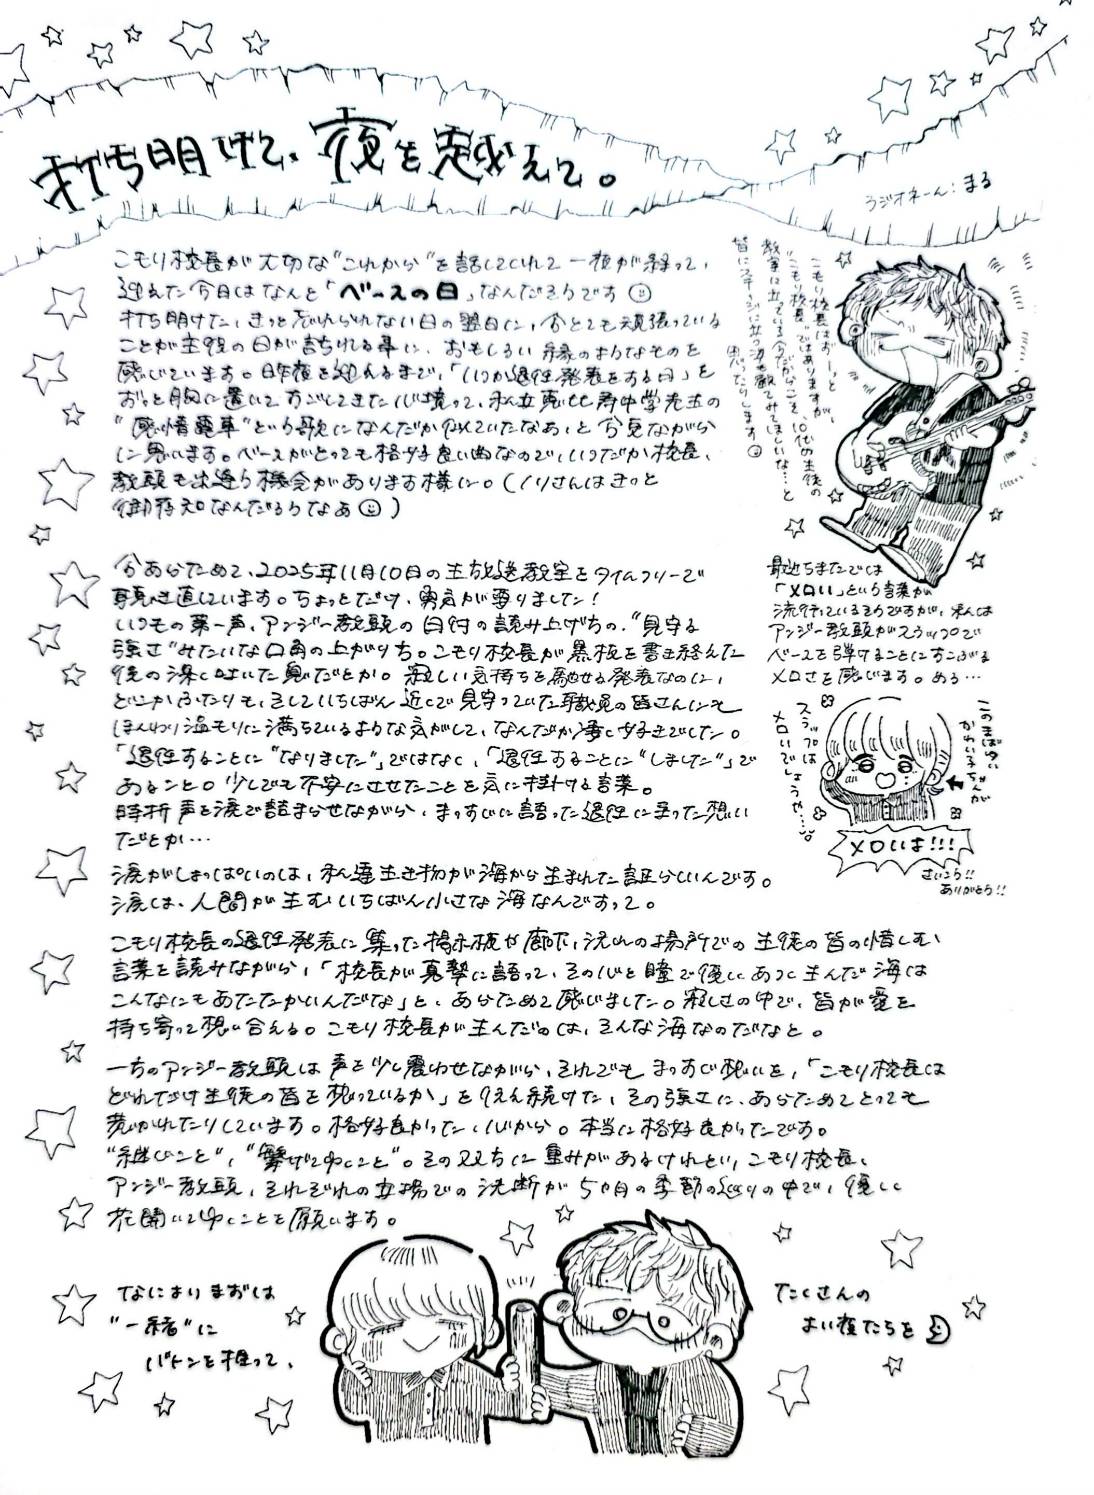 打ち明けて、夜を越えて。
ラジオネーム:まる
こもり校長が大切な"これから"を話してくれて一夜が経って、
迎えた今日はなんと「ベースの日」なんだそうです
打ち明けた、きっと忘れられない日の翌日に、今とても頑張っている
ことが主役の日が訪れる事に、おもしろい縁のようなものを
感じています。昨夜を迎えるまで、「いつか退任発表をする日」を
ずっと胸に置いてすごしてきた心境って、私立恵比寿中学先生の
"感情電車"という歌になんだか似ていたなあ、と今更ながら
に思います。ベースがとっても格好良い曲なので、いつだか校長、
教頭も出逢う機会があります様に。(ノリさんはきっと
御存知なんだろうなあ)
こもり校長はずーっと
"こもり校長"ではありますが、
教室に立っている今だからこそ、10代の生徒の
皆にステージに立つ姿も観てみてほしいな…と
思ったりします
今あらためて、2025年11月10日の生放送教室をタイムフリーで
聴き直しています。ちょっとだけ、勇気が要りました!
いつもの第一声、アンジー教頭の日付の読み上げ方の、"見守る
強さ"みたいな口角の上がり方。こもり校長が黒板を書き終えた
後の深く吐いた息だとか。寂しい気持ちを馳せる発表なのに、
どこかふたりも、そしていちばん近くで見守っていた職員の皆さんにも
ほんわり温もりに満ちているような気がして、なんだか凄く好きでした。
「退任することに"なりました"」ではなく、「退任することに"しました"」で
あること。少しでも不安にさせたことを気に掛ける言葉。
時折声を涙で詰まらせながら、まっすぐに語った退任に至った想い
だとか…
最近ちまたでは
「メロい」という言葉が
流行っているそうですが、私は
アンジー教頭がスラップで
ベースを弾けることにすこぶる
メロさを感じます。める…
このまばゆい
かわい子ちゃんが
スラップは
メロいでしょうや…
メロいよ!!!
さいこう!!
ありがとう!!
涙がしょっぱいのは、私達生き物が海から生まれた証らしいんです。
涙は、人間が生むいちばん小さな海なんですって。
こもり校長の退任発表に集った掲示板や廊下、沢山の場所での生徒の皆の惜しむ
言葉を読みながら、「校長が真摯に語って、その心と瞳で優しくあつく生んだ海は
こんなにもあたたかいんだな」と、あらためて感じました。寂しさの中で、皆が愛を
持ち寄って想い合える。こもり校長が生んだのは、そんな海なのだなと。
一方のアンジー教頭は声を少し震わせながら、それでもまっすぐ想いを、「こもり校長は
どれだけ生徒の皆を想っているか」を伝え続けた、その強さに、あらためてとっても
惹かれたりしています。格好良かった、心から。本当に格好良かったです。
"継ぐこと"、"繋げてゆくこと"。その双方に重みがあるけれど、こもり校長、
アンジー教頭、それぞれの立場での決断が5ヶ月の季節の巡りの中で、優しく
花開いてゆくことを願います。
なによりまずは
"一緒"に
バトンを握って、
たくさんの
よい夜たちを